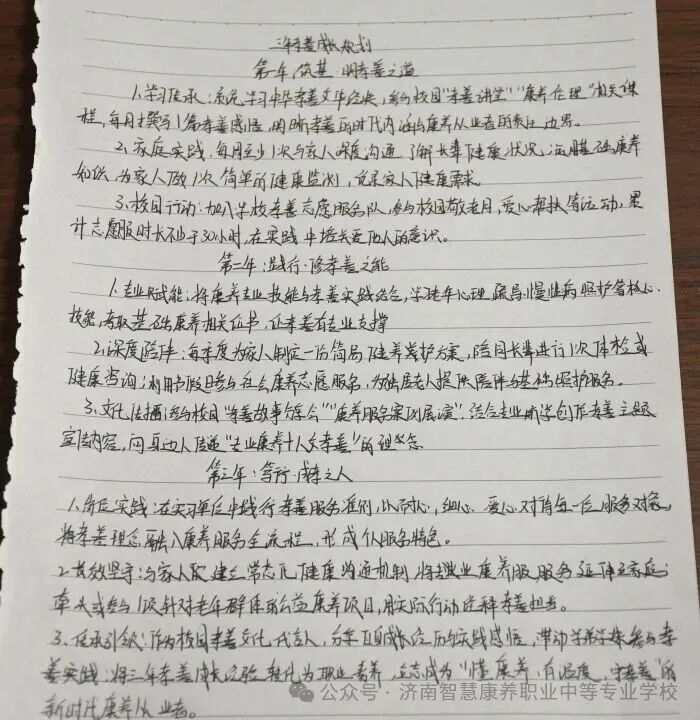 三年孝善成长规划
第一年:筑基·明孝善之道
1.学习传承:系统学习中华孝善文化经典,参与校园"孝善讲堂""康养伦理"相关课
程,每月撰写1篇孝善感悟,明晰孝善的时代内涵与康养从业者的责任边界。
2.家庭实践:每月至少1次与家人深度沟通,了解长辈健康状况,运用基础康养
知识,为家人做1次简单的健康监测,记录家人健康需求。
3.校园行动:加入学校孝善志愿服务队,参与校园敬老月、爱心帮扶等活动,累
计志愿服时长不少于30小时,在实践中培养关爱他人的意识。
第二年:践行·修孝善之能
1.专业赋能:将康养专业技能与孝善实践结合,学习老年心理疏导、慢性病照护等核心
技能,考取基础康养相关证书,让孝善有专业支撑
2.深度陪伴:每季度为家人制定一份简易健养护方案,陪同长辈进行1次体检或
健康咨询;利用假日参与社会康养志愿服务,为独居老人提供陪伴与基础照护服务。
3.文化传播:参与校园"孝善故事分享会""康养服务案例展演",结合专业所学创作孝善主题
宣传内容,向身边人传递"专业康养+人文孝善"的理念
第三年:笃行·成孝之人
1.岗位实践:在实习单位中践行孝善服务准则,以耐心、细心、爱心对待每一位服务对象,
将孝善理念融入康养服务全流程,形成个服务特色。
2.长效坚守:与家人建立常态化健康沟通机制,将职业康养服服务延伸至家庭;
牵头或参与1次针对老年群体的公益康养项目,用实际行动诠释孝善担当。
3.传承引领:作为校园孝善文化代言人,分享成长经历与实践感悟,带动学弟学妹参与孝
善实践;将三年孝善成长经验转化为职业素养,立志成为"懂康养、有温度、守孝善"的
新时代康养从业者。
公众号·济南智慧康养职业中等专业学校